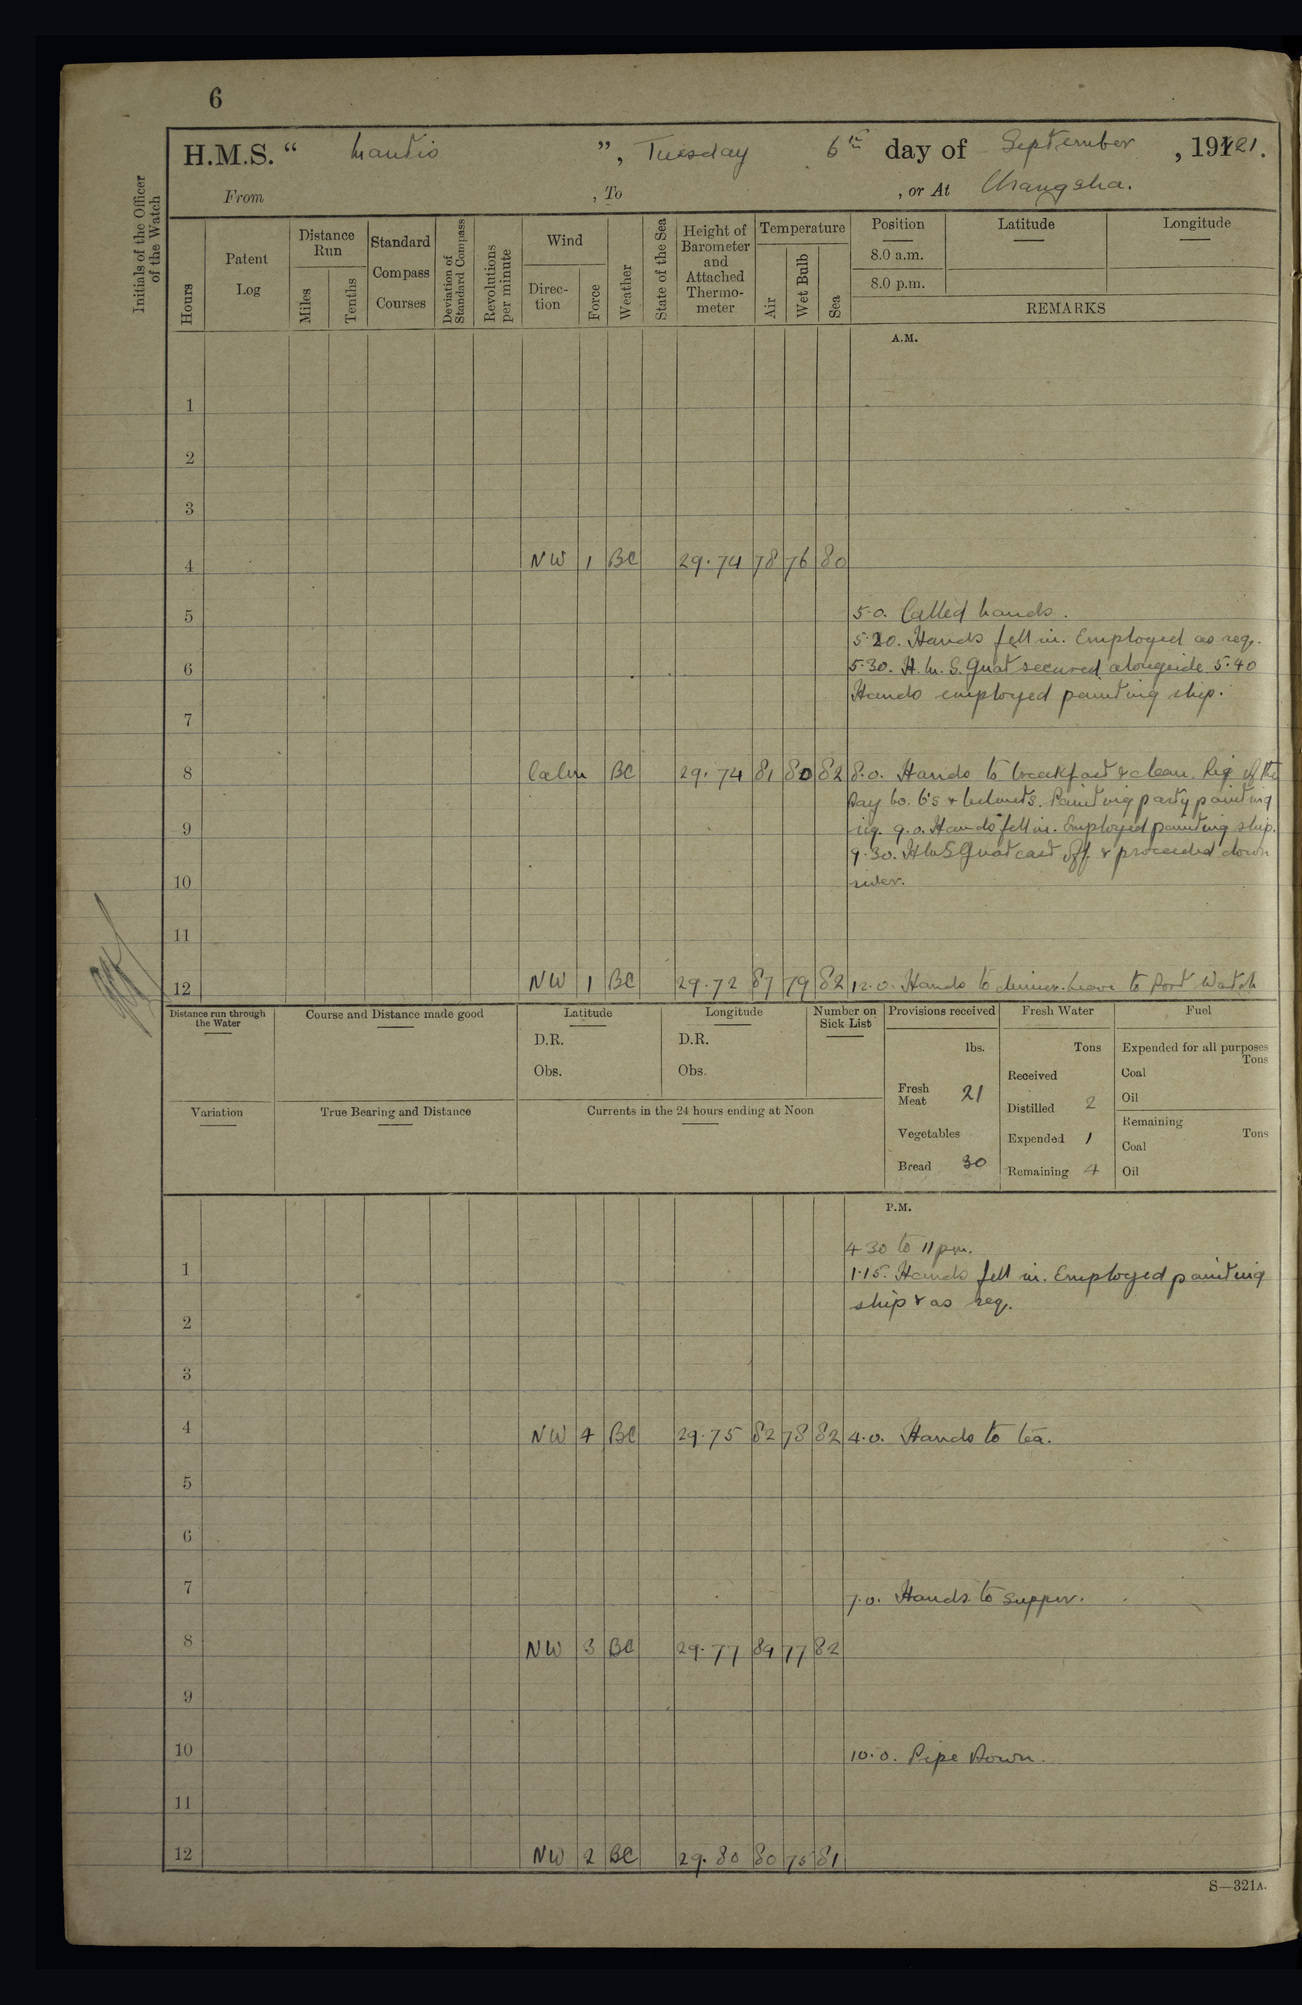 6
H.M.S. “ Mantis ”, Tuesday 6th day of September , 19121.
From , To , or At Changsha.
Initials of the Officer of the Watch
Hours
Patent Log
Distance Run
Miles
Tenths
Standard Compass Courses
Deviation of Standard Compass
Revolutions per minute
Wind
Direction
Force
Weather
State of the Sea
Height of Barometer and Attached Thermometer
Temperature
Air
Wet Bulb
Sea
Position
8.0 a.m.
8.0 p.m.
Latitude
Longitude
REMARKS
A.M.
1
2
3
4 NW 1 BC 29.74 78 76 80
5 5.0. Called hands.
5.20. Hands fell in. Employed as req.
6 5.30. H.M.S. Gnat secured alongside 5.40
Hands employed painting ship.
7
8 Calm BC 29.74 81 80 82 8.0. Hands to breakfast & clean. Rig of the
Day No. 6's & helmets. Painting party painting
9 rig. 9.0. Hands fell in. Employed painting ship.
9.30. HMS Gnat cast off & proceeded down
10 river.
11
12 NW 1 BC 29.72 87 79 82 12.0. Hands to dinner. Leave to Port Watch
Distance run through the Water
Course and Distance made good
Latitude
D.R.
Obs.
Longitude
D.R.
Obs.
Number on Sick List
Provisions received
lbs.
Fresh Meat 21
Vegetables
Bread 30
Fresh Water
Tons
Received
Distilled 2
Expended 1
Remaining 4
Fuel
Expended for all purposes
Tons
Coal
Oil
Remaining
Tons
Coal
Oil
Variation
True Bearing and Distance
Currents in the 24 hours ending at Noon
P.M.
4.30 to 11 pm.
1 1.15. Hands fell in. Employed painting
ship & as req.
2
3
4 NW 4 BC 29.75 82 78 82 4.0. Hands to tea.
5
6
7 7.0. Hands to supper.
8 NW 3 BC 29.77 84 77 82
9
10 10.0. Pipe Down.
11
12 NW 2 BC 29.80 80 75 81
S—321A.